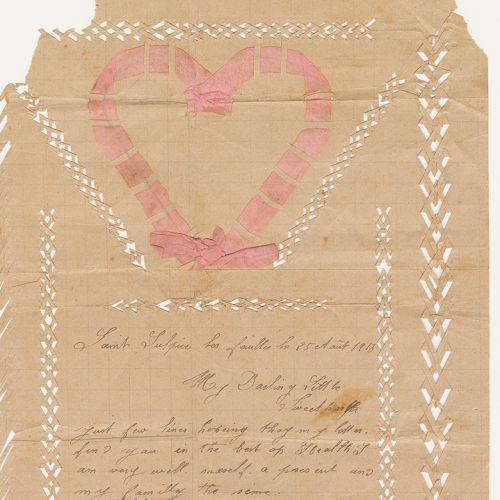 Saint Sulpice les feuilles le 25 Aout 1918
My Darling Little
Sweetheart
Just few lines hopeing thay my letter
find you en the best of Health I
am very well myself a present and
my familly the same.